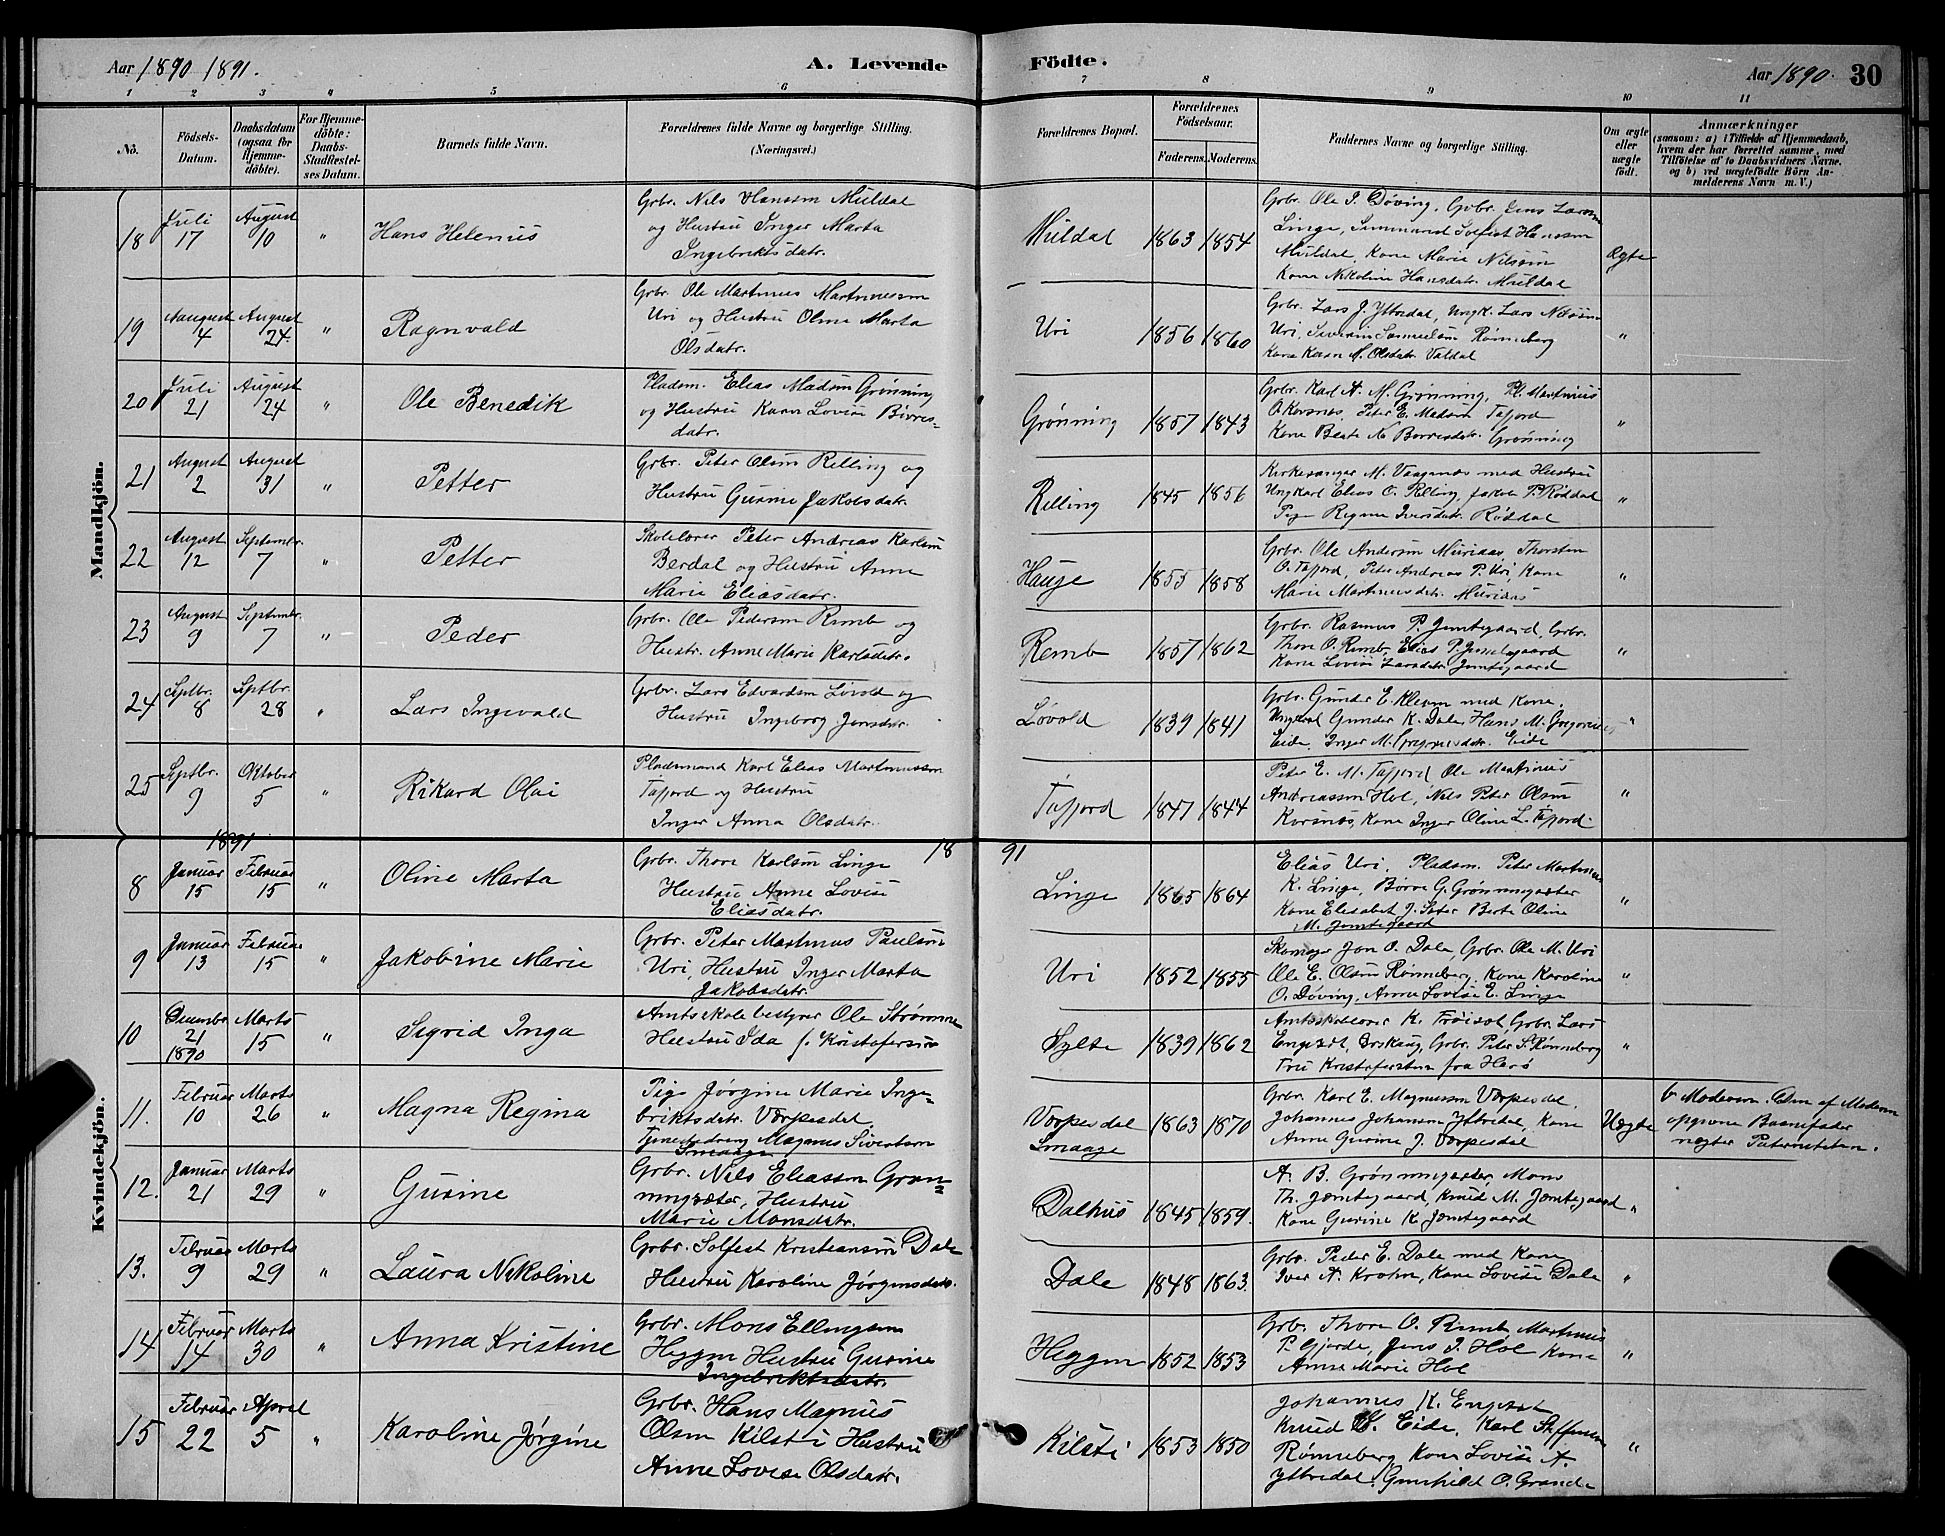 Aar 1890 1891.
A. Levende
Födte.
Aar 1890.
30
1 2 3 4 5 6 7 8 9 10 11
No.
Födsels-Datum.
Daabsdatum (ogsaa for Hjemmedöbte).
For Hjemmedöbte: Daabs-Stadfæstelses Datum.
Barnets fulde Navn.
Forældrenes fulde Navne og borgerlige Stilling.
(Næringsvei.)
Forældrenes Bopæl.
Forældrenes Födselsaar.
Faderens. Moderens.
Faddernes Navne og borgerlige Stilling.
Om ægte eller uægte födt.
Anmærkninger
(saasom: a) i Tilfælde af Hjemmedaab,
hvem der har forrettet samme, med
Tilföielse af to Daabsvidners Navne.
og b) ved uægtefödte Börn Anmelderens Navn m. V.)
Mandkjön.
18 Juli 17 August 10 " Hans Helenus
Grbr. Nils Hansen Muldal
og Hustru Inger Marta
Ingebriktsdatr.
Muldal 1863 1854
Grbr. Ole I. Døving, Grbr. Jens Larsen
Linge, Sølfest Hansen
Muldal, Kone Marie Nilsson
Kone Nikoline Hansdatr. Muldal
Ægte
19 Aaugust 4 August 24 " Ragnvald
Grbr. Ole Martinus Martinussen
Uri og Hustru Oline Marta
Olsdatr.
Uri 1856 1860
Grbr. Lars J. Ytredal, Ungk. Lars Nilssen
Uri, Severin Samuelsen Rønneberg
Kone Karn N. Olsdatr Valdal
"
20 Juli 21 August 24 " Ole Benedik
Pladsm. Elias Madsen Grønning
og Hustru Karn Lovise Børres=
datr.
Grønning 1857 1843
Grbr. Karl A. M. Grønning, Pl. Martinus
O. Korsnes, Peter E. Madsen Tafjord
Kone Berte N. Børresdatr. Grønning
"
21 August 2 August 31 " Petter
Grbr. Peter Olsen Relling og
Hustru Gurine Jakobsdatr.
Relling 1845 1856
Kirkesanger M. Vaagenæs med Hustru
Ungkarl Elias O. Relling, Jakob P. Røddal
Pige Regine Iversdatr. Røddal
"
22 August 12 Septembr. 7 " Petter
Skolelærer Peter Andreas Karlsen
Berdal og Hustru Anne
Marie Eliasdatr.
Hauge 1855 1858
Grbr. Ole Andersen Muriaas, Thorsten
O. Tafjord, Peter Andreas P. Uri, Kone
Marie Martinusdatr. Muriaas
"
23 August 9 Septembr. 7 " Peder
Grbr. Ole Pedersen Remb og
Hustr. Anne Marie Karlsdatr.
Remb 1857 1862
Grbr. Rasmus P. Jemtegaard, Grbr.
Thore O. Remb, Elias P. Jemtegaard
Kone Lovise Larsdatr Jemtegaard
"
24 Septbr. 8 Septbr. 28 " Lars Ingevald
Grbr. Lars Edvardsen Løvold og
Hustru Ingeborg Jensdatr.
Løvold 1839 1841
Grbr. Gunder E. Kleven med Kone,
Ungkarl Gunder K. Dale, Hans M. Gregorius
Eide, Inger M. Gregoriusdatr. Eide
"
25 Septbr. 9 Oktober 5 " Rikard Olai
Pladsmand Karl Elias Martinussen
Tafjord og Hustru
Inger Anna Olsdatr.
Tafjord 1847 1844
Peter E. M. Tafjord, Ole Martinus
Andreassen Hol, Nils Peter Olsen
Korsnes, Kone Inger Oline L. Tafjord.
"
1891
18 91
Kvindekjön.
8 Januar 15 Februar 15 " Oline Marta
Grbr. Thore Karlsen Linge
Hustru Anne Lovise
Eliasdatr.
Linge 1865 1864
Elias Uri, Pladsm. Peter Martinus
K. Linge, Børre G. Grønningsæter
Kone Elisabet J. Sæter, Berte Oline
M. Jemtegaard
"
9 Januar 13 Februar 15 " Jakobine Marie
Grbr. Peter Martinus Paulsen
Uri, Hustru Inger Marta
Jakobsdatr.
Uri 1852 1855
Skomager Jon O. Dale, Grbr. Ole M. Uri
Ole E. Olsen Rønneberg, Kone Karoline
O. Døving, Anne Lovise E. Linge
"
10 Decembr 21 1890 Marts 15 " Sigrid Inga
Amtsskolebestyrer Ole Strømme
Hustru Ida f. Kristofersen
Sylte 1839 1862
Amtsskolelærer K. Trøisot, Grbr. Lars
Engeset, Ørskoug, Grbr. Peter S. Rønneberg
Fru Kristofersen fra Hors
"
11. Februar 10 Marts 26 " Magna Regina
Pige Jørgine Marie Inge=
briktsdatr. Værpesdal.
Tjenestedreng Magnus Sivertsen
Smaage
Værpesdal Smaage 1863 1870
Grbr. Karl E. Magnussen Værpesdal,
Johannes Johansen Ytredal, Kone
Anne Gurine J. Værpesdal
Uægte
b. Moderen. Den af Moderen
opgivne Barnefader
nægter Paterniteten.
12. Januar 21 Marts 29 " Gurine
Grbr. Nils Eliassen Grøn=
ningsæter, Hustru
Marie Monsdatr.
Dalhus 1845 1859.
A. B. Grønningsæter, Mons
Th. Jemtegaard, Knud M. Jemtegaard
Kone Gurine K. Jemtegaard
"
13. Februar 9 Marts 29 " Laura Nikoline
Grbr. Solfest Kristiansen Dale
Hustru Karoline Jørgensdatr.
Dale 1848 1863.
Grbr. Peder E. Dale med Kone
Iver A. Krohn, Kone Lovise Dale
"
14 Februar 14 Marts 30 " Anna Kristine
Grbr. Mons Ellingsen
Heggen Hustru Gurine
Ingebriktsdatr.
Heggen 1852 1853
Grbr. Thore O. Remb, Martinus
P. Gjerde, Jens I. Hol Kone
Anne Marie Hol
"
15 Februar 22 April 5 " Karoline Jørgine
Grbr. Hans Magnus
Olsen Kilsti Hustru
Anne Lovise Olsdatr.
Kilsti 1853 1850
Johannes K. Engeset
Knud S. Eide, Karl Steffensen
Rønneberg Kone Lovise A.
Ytredal, Gunhild O. Grande
"